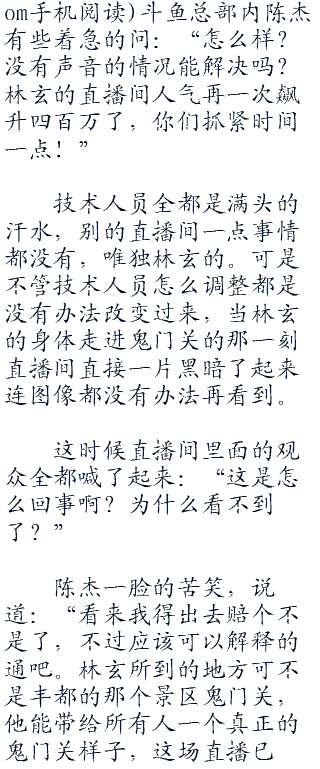 om手机阅读)斗鱼总部内陈杰
有些着急的问：“怎么样？
没有声音的情况能解决吗？
林玄的直播间人气再一次飙
升四百万了，你们抓紧时间
一点！”
技术人员全都是满头的
汗水，别的直播间一点事情
都没有，唯独林玄的。可是
不管技术人员怎么调整都是
没有办法改变过来，当林玄
的身体走进鬼门关的那一刻
直播间直接一片黑暗了起来
连图像都没有办法再看到。
这时候直播间里面的观
众全都喊了起来：“这是怎
么回事啊？为什么看不到
了？”
陈杰一脸的苦笑，说
道：“看来我得出去赔个不
是了，不过应该可以解释的
通吧。林玄所到的地方可不
是丰都的那个景区鬼门关，
他能带给所有人一个真正的
鬼门关样子，这场直播已